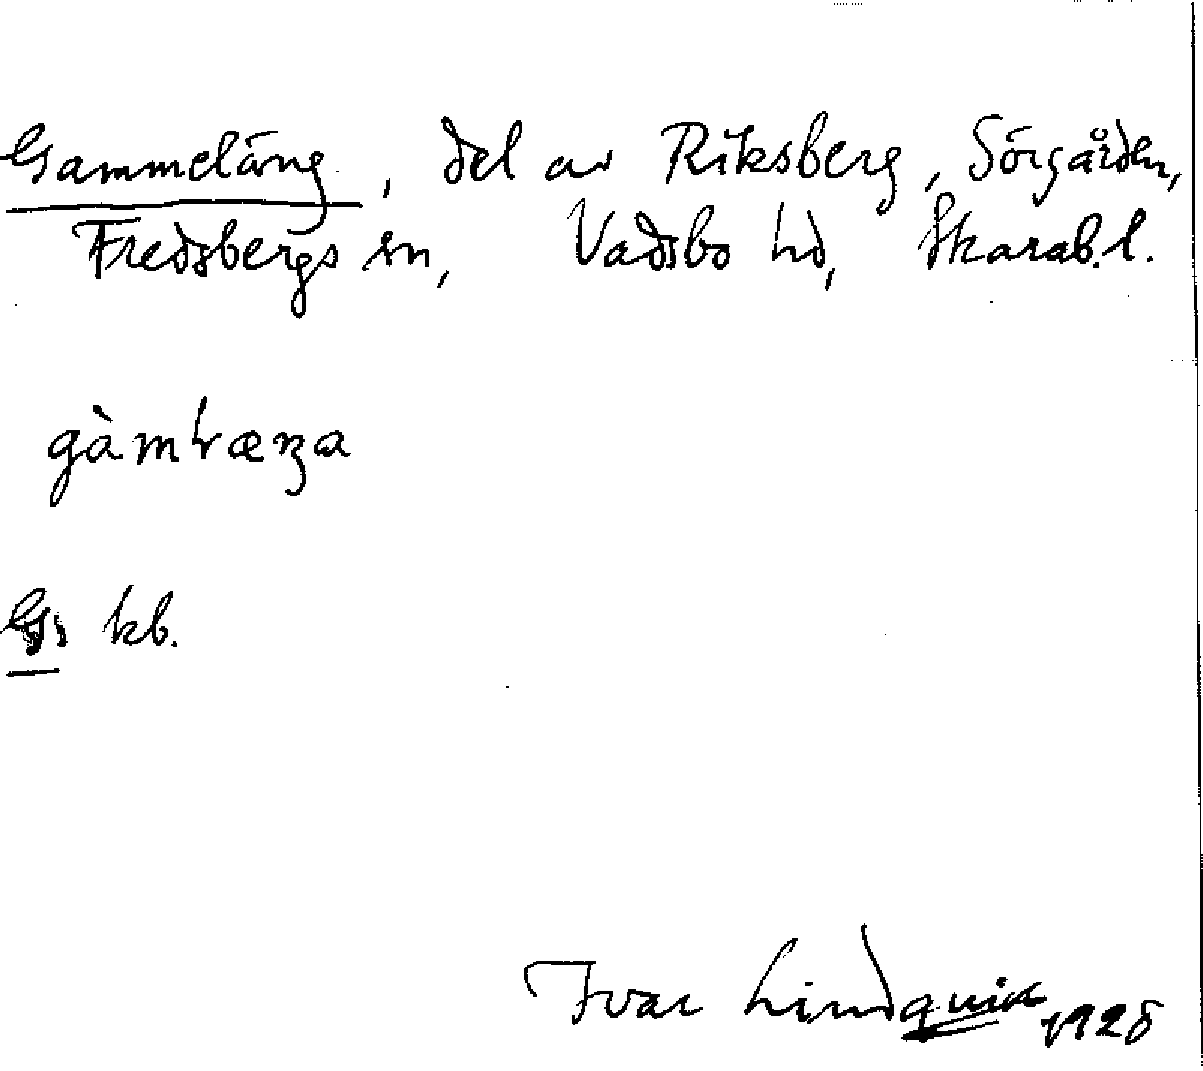 Gammeläng, del av Riksberg, Sörgården,
Fredsbergs sn, Vadsbo hd, Skarab.l.
G. kb.
Ivar Lindquist 1928